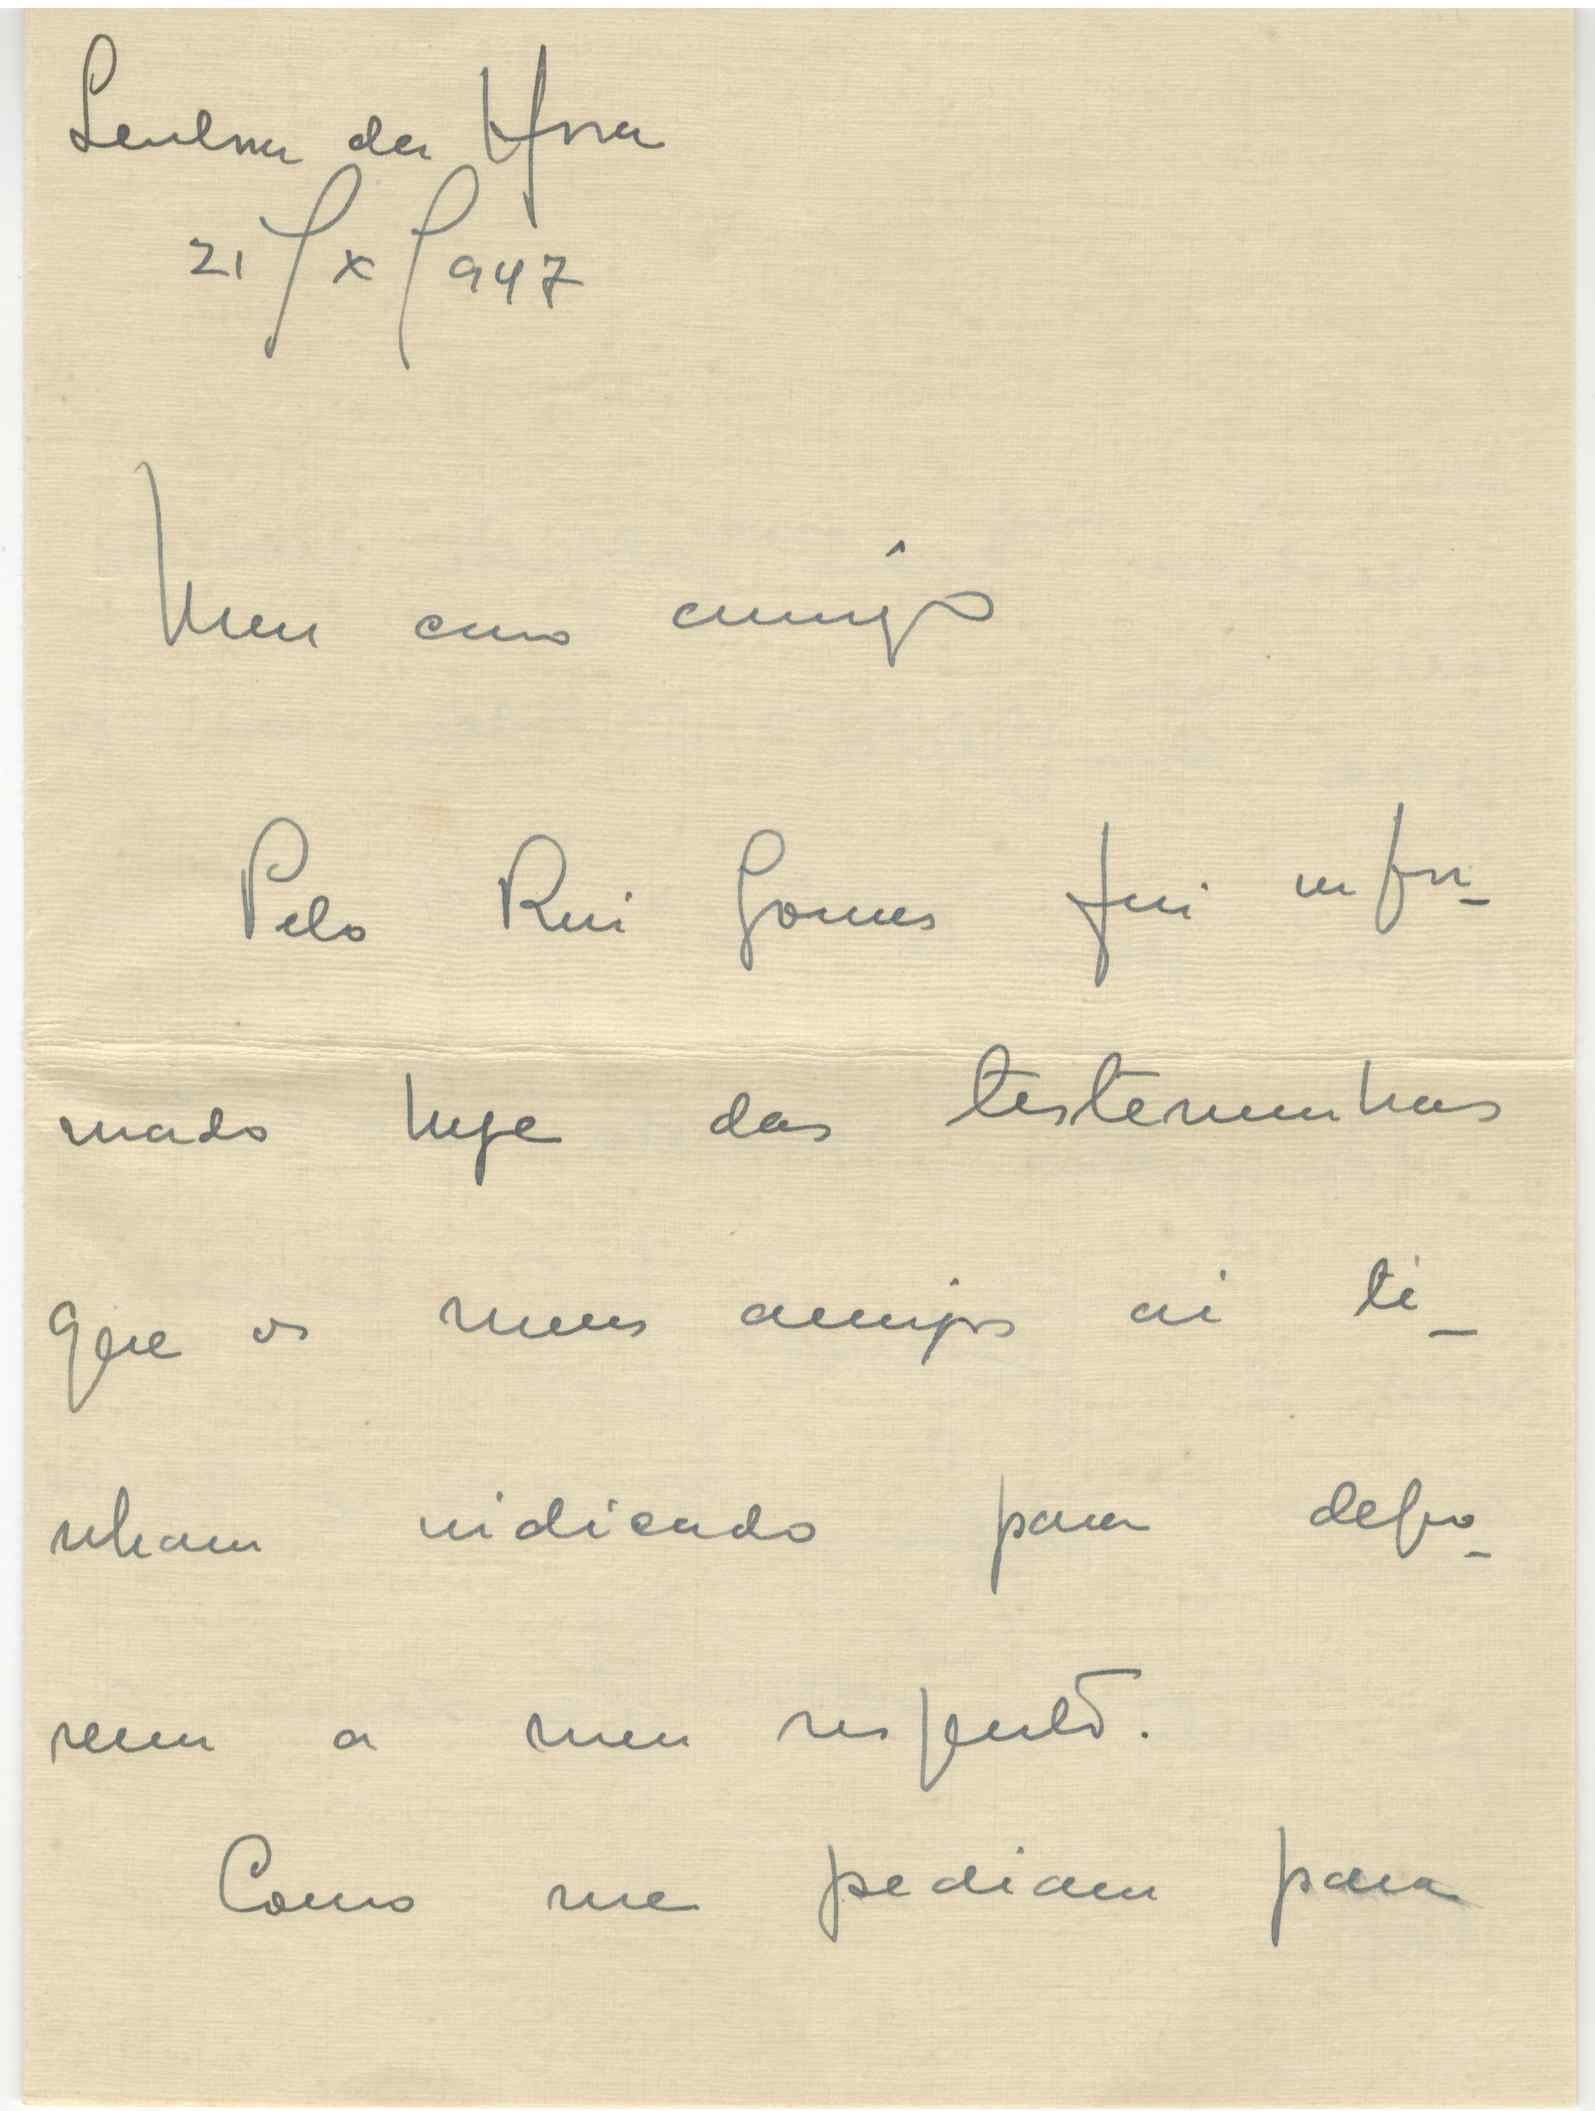 Senhora da Hora
21/X/947
Meu caro amigo
Pelo Rui Gomes fui infor-
mado hoje das testemunhas
que os meus amigos aí ti-
nham indicado para depo-
rem a meu respeito.
Como me pediam para